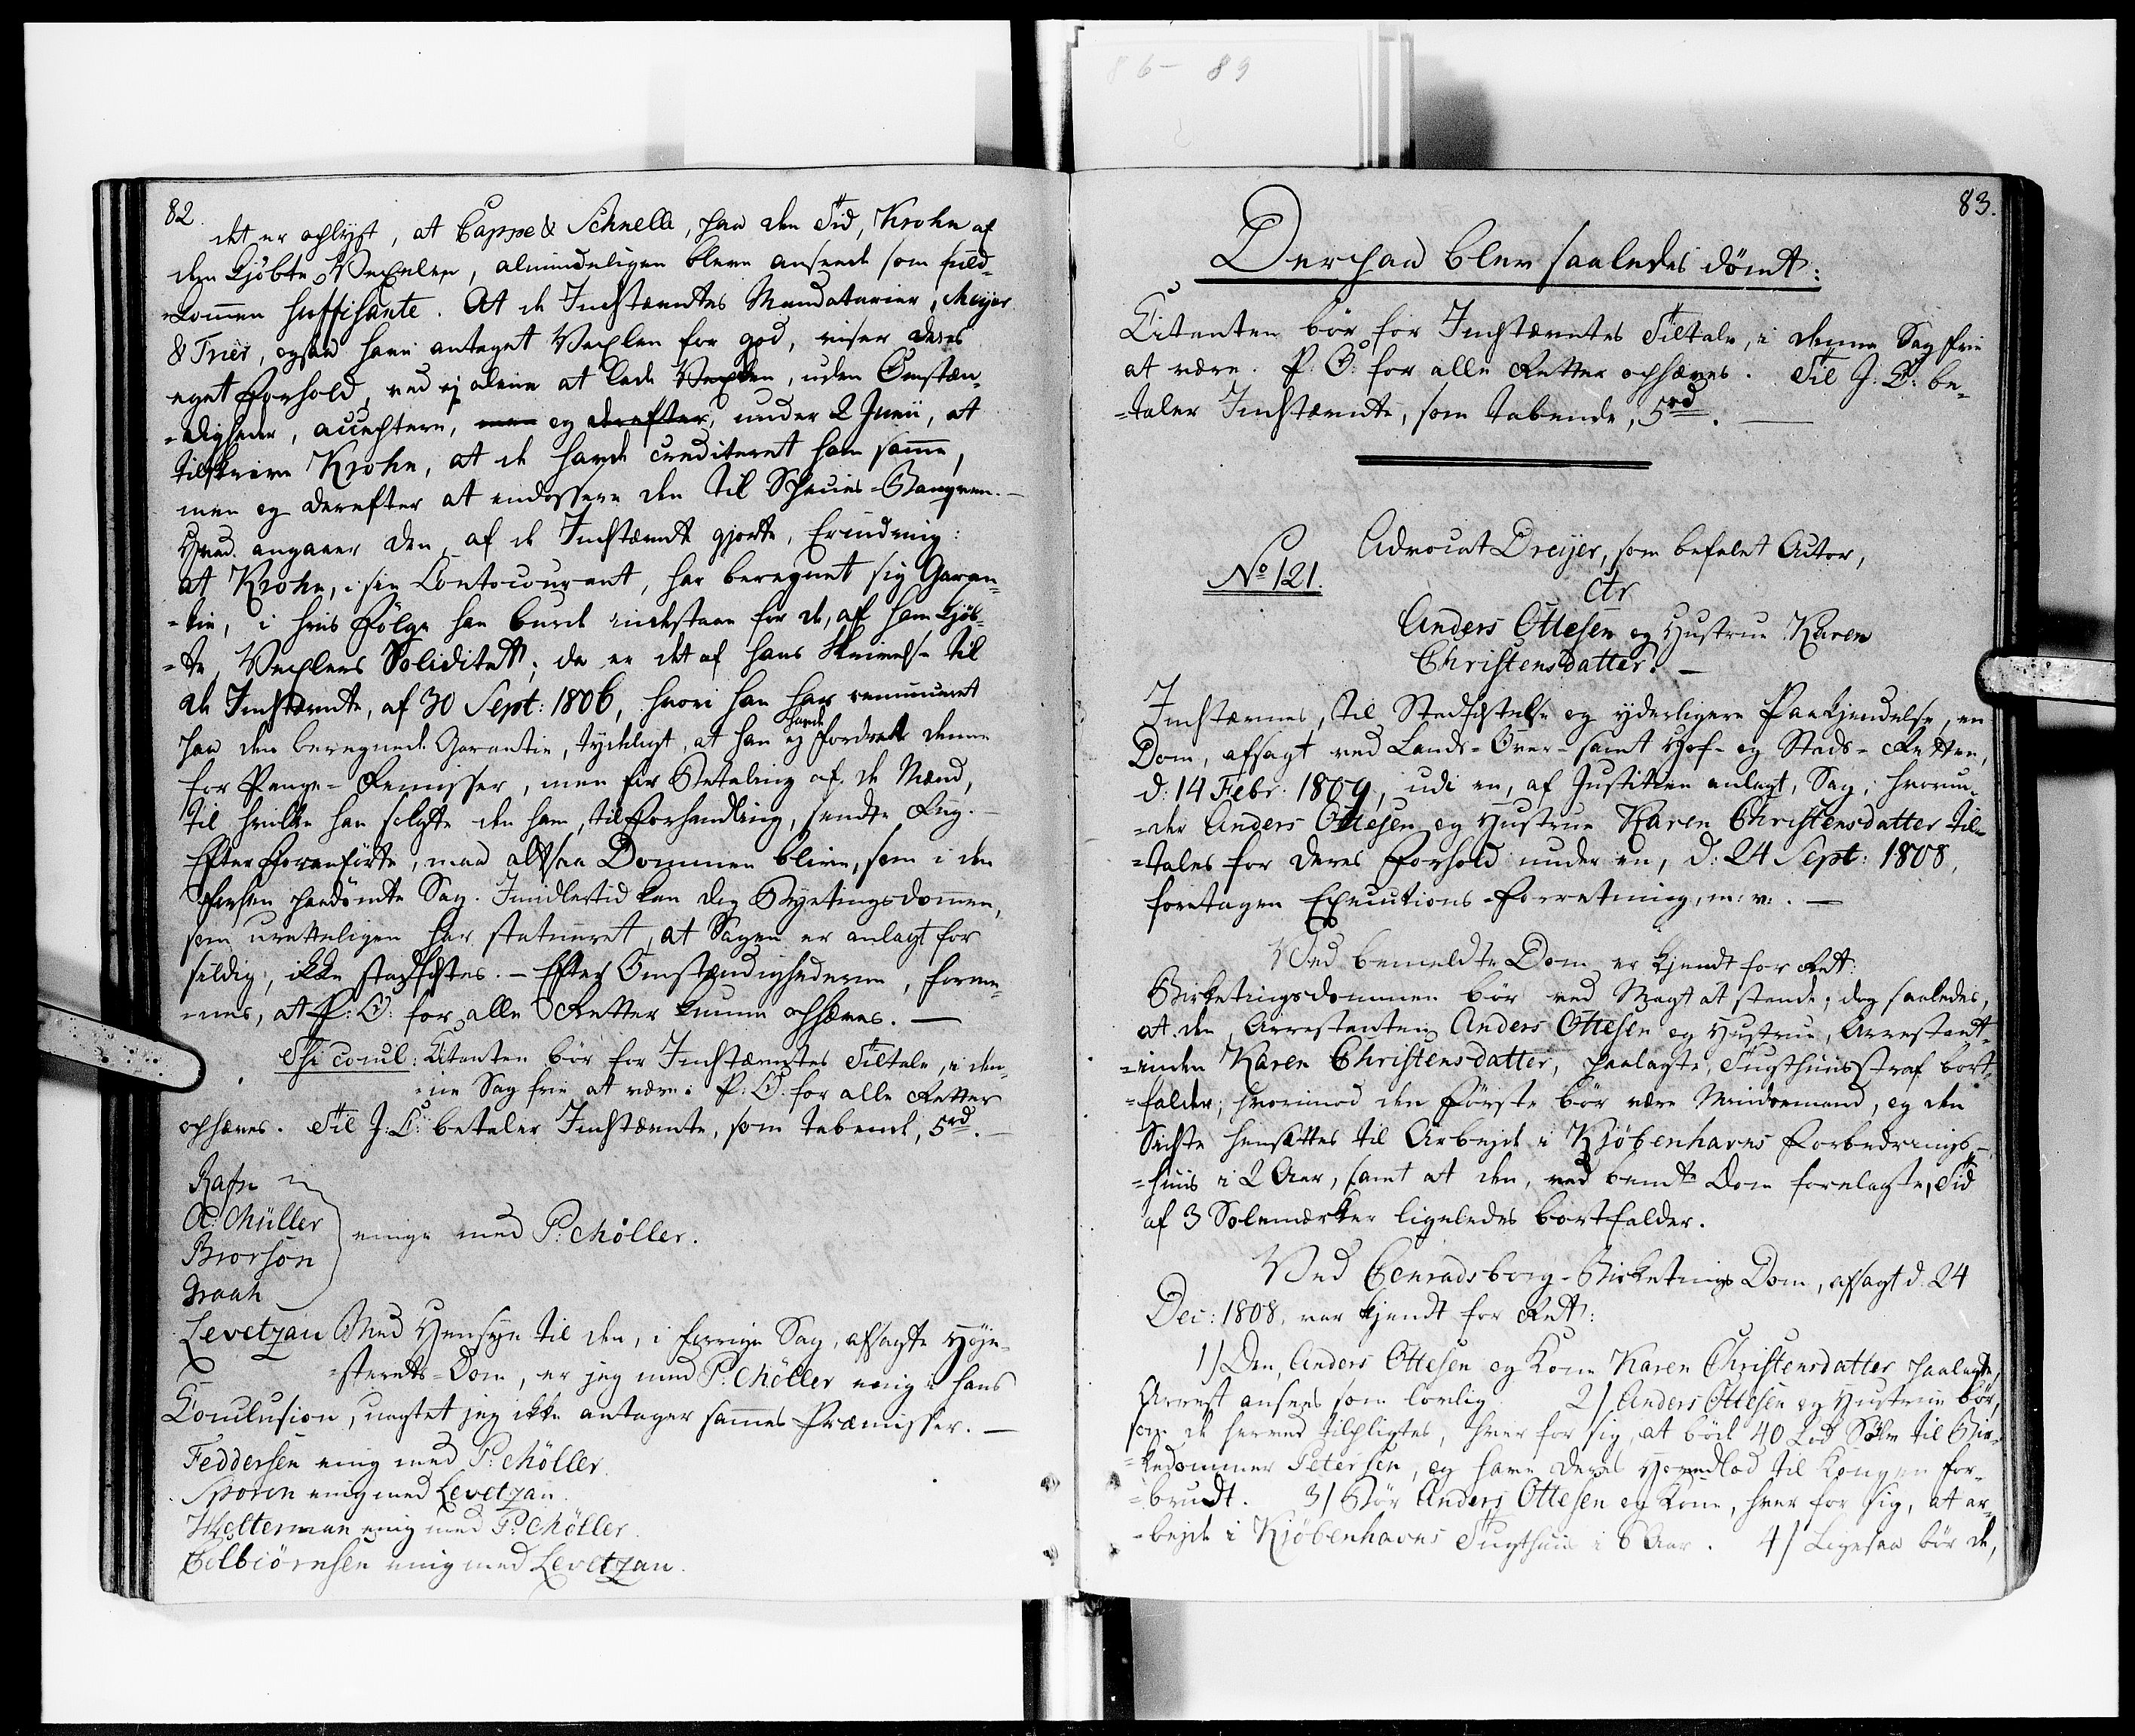 86- 89
82.
det er oplyst, at Cappe & Schnelle, paa den Tid, Krohn af
dem kjøbte Vexelen, almindeligen bleve ansete som fuld-
-kommen suffisante. At de Indstævntes Mandatarier, Meyer
& Trier, ogsaa have antaget Vexlen for god, viser deres
eget Forhold, ved ej alene at lade Vexlen, uden Omstæn-
-digheder, acceptere, men og derefter, under 2 Junii, at
tilskrive Krohn, at de havde crediteret ham samme,
men og derefter at endossere den til Species-Banqven. -
Hvad angaaer den, af de Indstævnte gjorte, Erindring:
at Krohn, i sin Contocourant, har beregnet sig Garan-
-tie, i hvis Følge han burde indestaae for de, af ham kjøb-
-te, Vexlers Soliditet; da er det af hans Skrivelse til
de Indstævnte, af 30 Sept: 1806, hvori han har renunceret
paa den beregnede Garantie, tydeligt, at han ej havde fordret denne
for Penge-Remisser, men for Betaling af de Mænd,
til hvilke han solgte den ham, til Forhandling, sendte Rug. -
Efter Foranførte, maa altsaa Dommen blive, som i den
forhen paadømte Sag. Imidlertid kan dog Byetingsdommen,
som uretteligen har statueret, at Sagen er anlagt for
sildig, ikke stadfæstes. - Efter Omstændighederne, forme-
-nes, at P: O: for alle Retter kunne ophæves. -
Thi concl: Citanten bør for Indstævntes Tiltale, i den-
-ne Sag frie at være. P: O: for alle Retter
ophæves. Til J: C: betaler Indstævnte, som tabende, 5rd. -
Rafn
A: Müller
Brorson
Graah
enige med P: Møller.
Levetzau Med Hensyn til den, i forrige Sag, afsagte Høje-
-sterets-Dom, er jeg med P: Møller enig i hans
Conclusion, uagtet jeg ikke antager sammes Præmisser. -
Feddersen enig med P: Møller.
Sporon enig med Levetzau.
Holterman enig med P: Møller.
Colbiørnsen enig med Levetzau.
83.
Derpaa blev saaledes dømt:
Citanten bør for Indstævntes Tiltale, i denne Sag frie
at være. P: O: for alle Retter ophæves. Til J: C: be-
-taler Indstævnte, som tabende, 5rd. -
Advocat Dreijer, som befalet Actor,
No 121.
ctr
Anders Ottesen og Hustrue Karen
Christensdatter. -
Indstævnes, til Stadfæstelse og yderligere Paakjendelse, en
Dom, afsagt ved Lands-Over- samt Hof- og Stads-Retten,
d: 14 Febr. 1809, udi en, af Justitien anlagt, Sag; hvorun-
-der Anders Ottesen og Hustrue Karen Christensdatter til-
-tales for deres Forhold under en, d: 24 Sept: 1808,
foretagen Executions-Forretning, m: v: . -
Ved bemeldte Dom er kjendt for Ret:
Birketingsdommen bør ved Magt at stande; dog saaledes,
at den, Arrestanten Anders Ottesen og Hustrue, Arrestant-
-inden Karen Christensdatter, paalagte, Tugthuusstraf bort-
-falder; hvorimod den Første bør være Mindremand, og den
Sidste hensættes til Arbejde i Kjøbenhavns Forbedrings-
-huus i 2 Aar, samt at den, ved bemte Dom forelagte, Tid
af 3 Solemærker ligeledes bortfalder.
Ved Conradsborg-Birketings Dom, afsagt d. 24
Dec: 1808, var kjendt for Ret:
1/ Den, Anders Ottesen og Kone Karen Christensdatter paalagte,
Arrest ansees som lovlig. 2/ Anders Ottesen og Hustrue bør,
som de herved tilpligtes, hver for sig, at böde 40 Lod Sølv til Bir-
-kedommer Petersen, og have deres Hovedlod til Kongen for-
-brudt. 3/ Bør Anders Ottesen og Kone, hver for sig, at ar-
-bejde i Kjøbenhavns Tugthuus i 6 Aar. 4/ Ligesaa bør de,